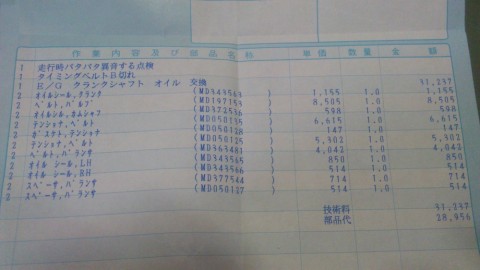 作業内容及び部品名称 単価 数量 金額
1 走行時パタパタ異音する点検
1 タイミングベルトB切れ
1 E/G クランクシャフト オイル 交換 31,237
2 オイルシール,クランク (MD343563 ) 1,155 1.0 1,155
2 ベルト,バルブ (MD197153 ) 8,505 1.0 8,505
2 オイルシル,カムシャフ (MD372536 ) 598 1.0 598
2 テンショナ,ベルト (MD050135 ) 6,615 1.0 6,615
2 ガスケット,テンショナ (MD050128 ) 147 1.0 147
2 テンショナ,ベルト (MD050125 ) 5,302 1.0 5,302
2 ベルト,バランサ (MD363481 ) 4,042 1.0 4,042
2 オイル シール,LH (MD343565 ) 850 1.0 850
2 オイル シール,RH (MD343566 ) 514 1.0 514
2 スペーサ,バランサ (MD377544 ) 714 1.0 714
2 スペーサ,バランサ (MD050127 ) 514 1.0 514
技術料 31,237
部品代 28,956